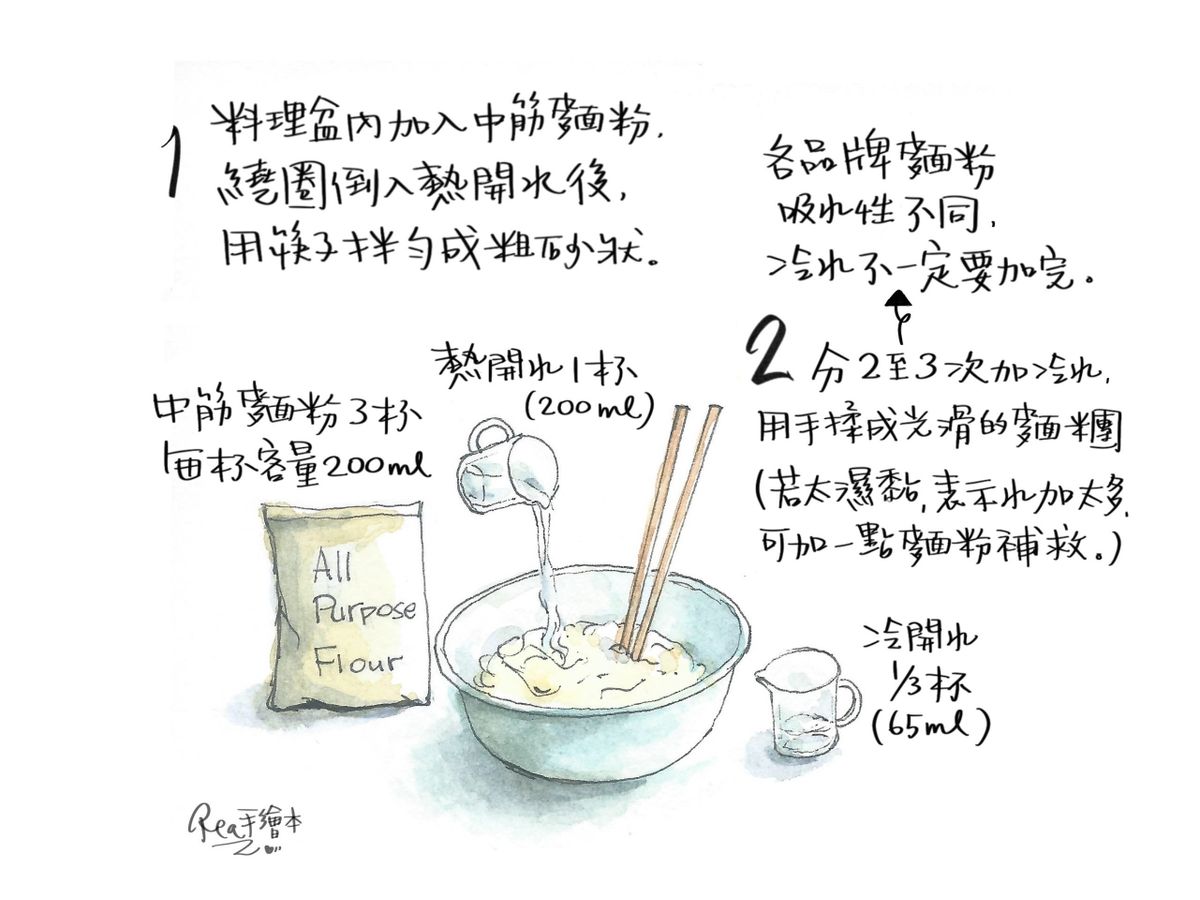 1
料理盆內加入中筋麵粉,
繞圈倒入熱開水後,
用筷子拌勻成粗砂狀。
中筋麵粉3杯
每杯容量200ml
熱開水1杯
(200ml)
All
Purpose
Flour
各品牌麵粉
吸水性不同,
冷水不一定要加完。
2 分2至3次加冷水,
用手揉成光滑的麵糰
(若太濕黏,表示水加太多,
可加一點麵粉補救。)
冷開水
1/3杯
(65ml)
Rea手繪本